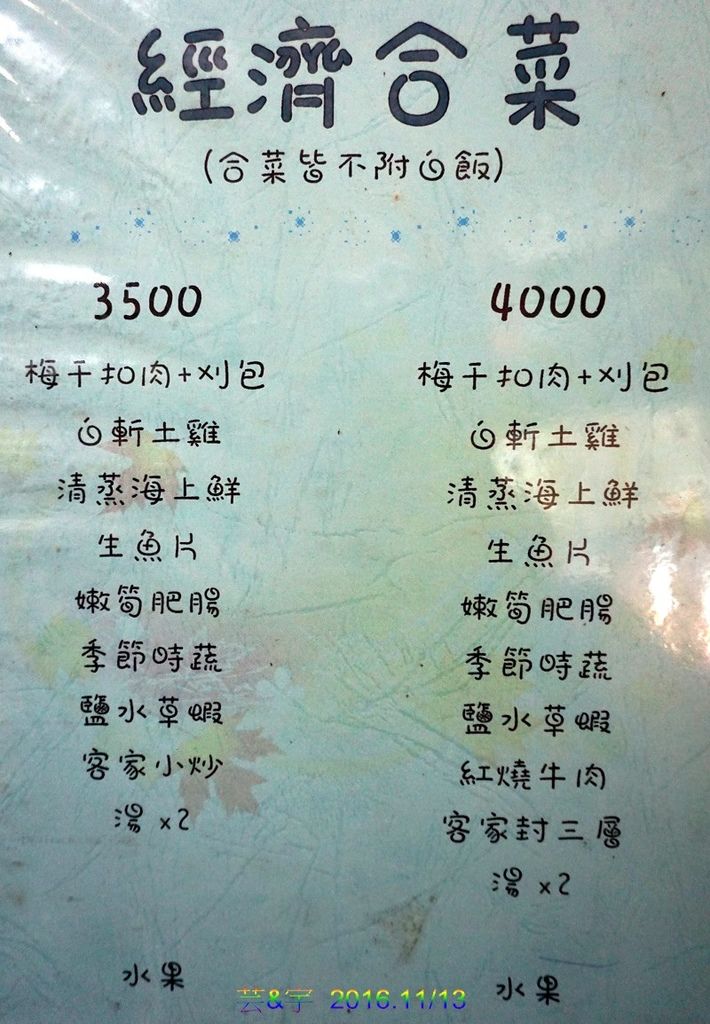 經濟合菜
(合菜皆不附白飯)
3500
梅干扣肉+刈包
白斬土雞
清蒸海上鮮
生魚片
嫩筍肥腸
季節時蔬
鹽水草蝦
客家小炒
湯 x2
水果
4000
梅干扣肉+刈包
白斬土雞
清蒸海上鮮
生魚片
嫩筍肥腸
季節時蔬
鹽水草蝦
紅燒牛肉
客家封三層
湯 x2
水果
芸&宇 2016.11/13